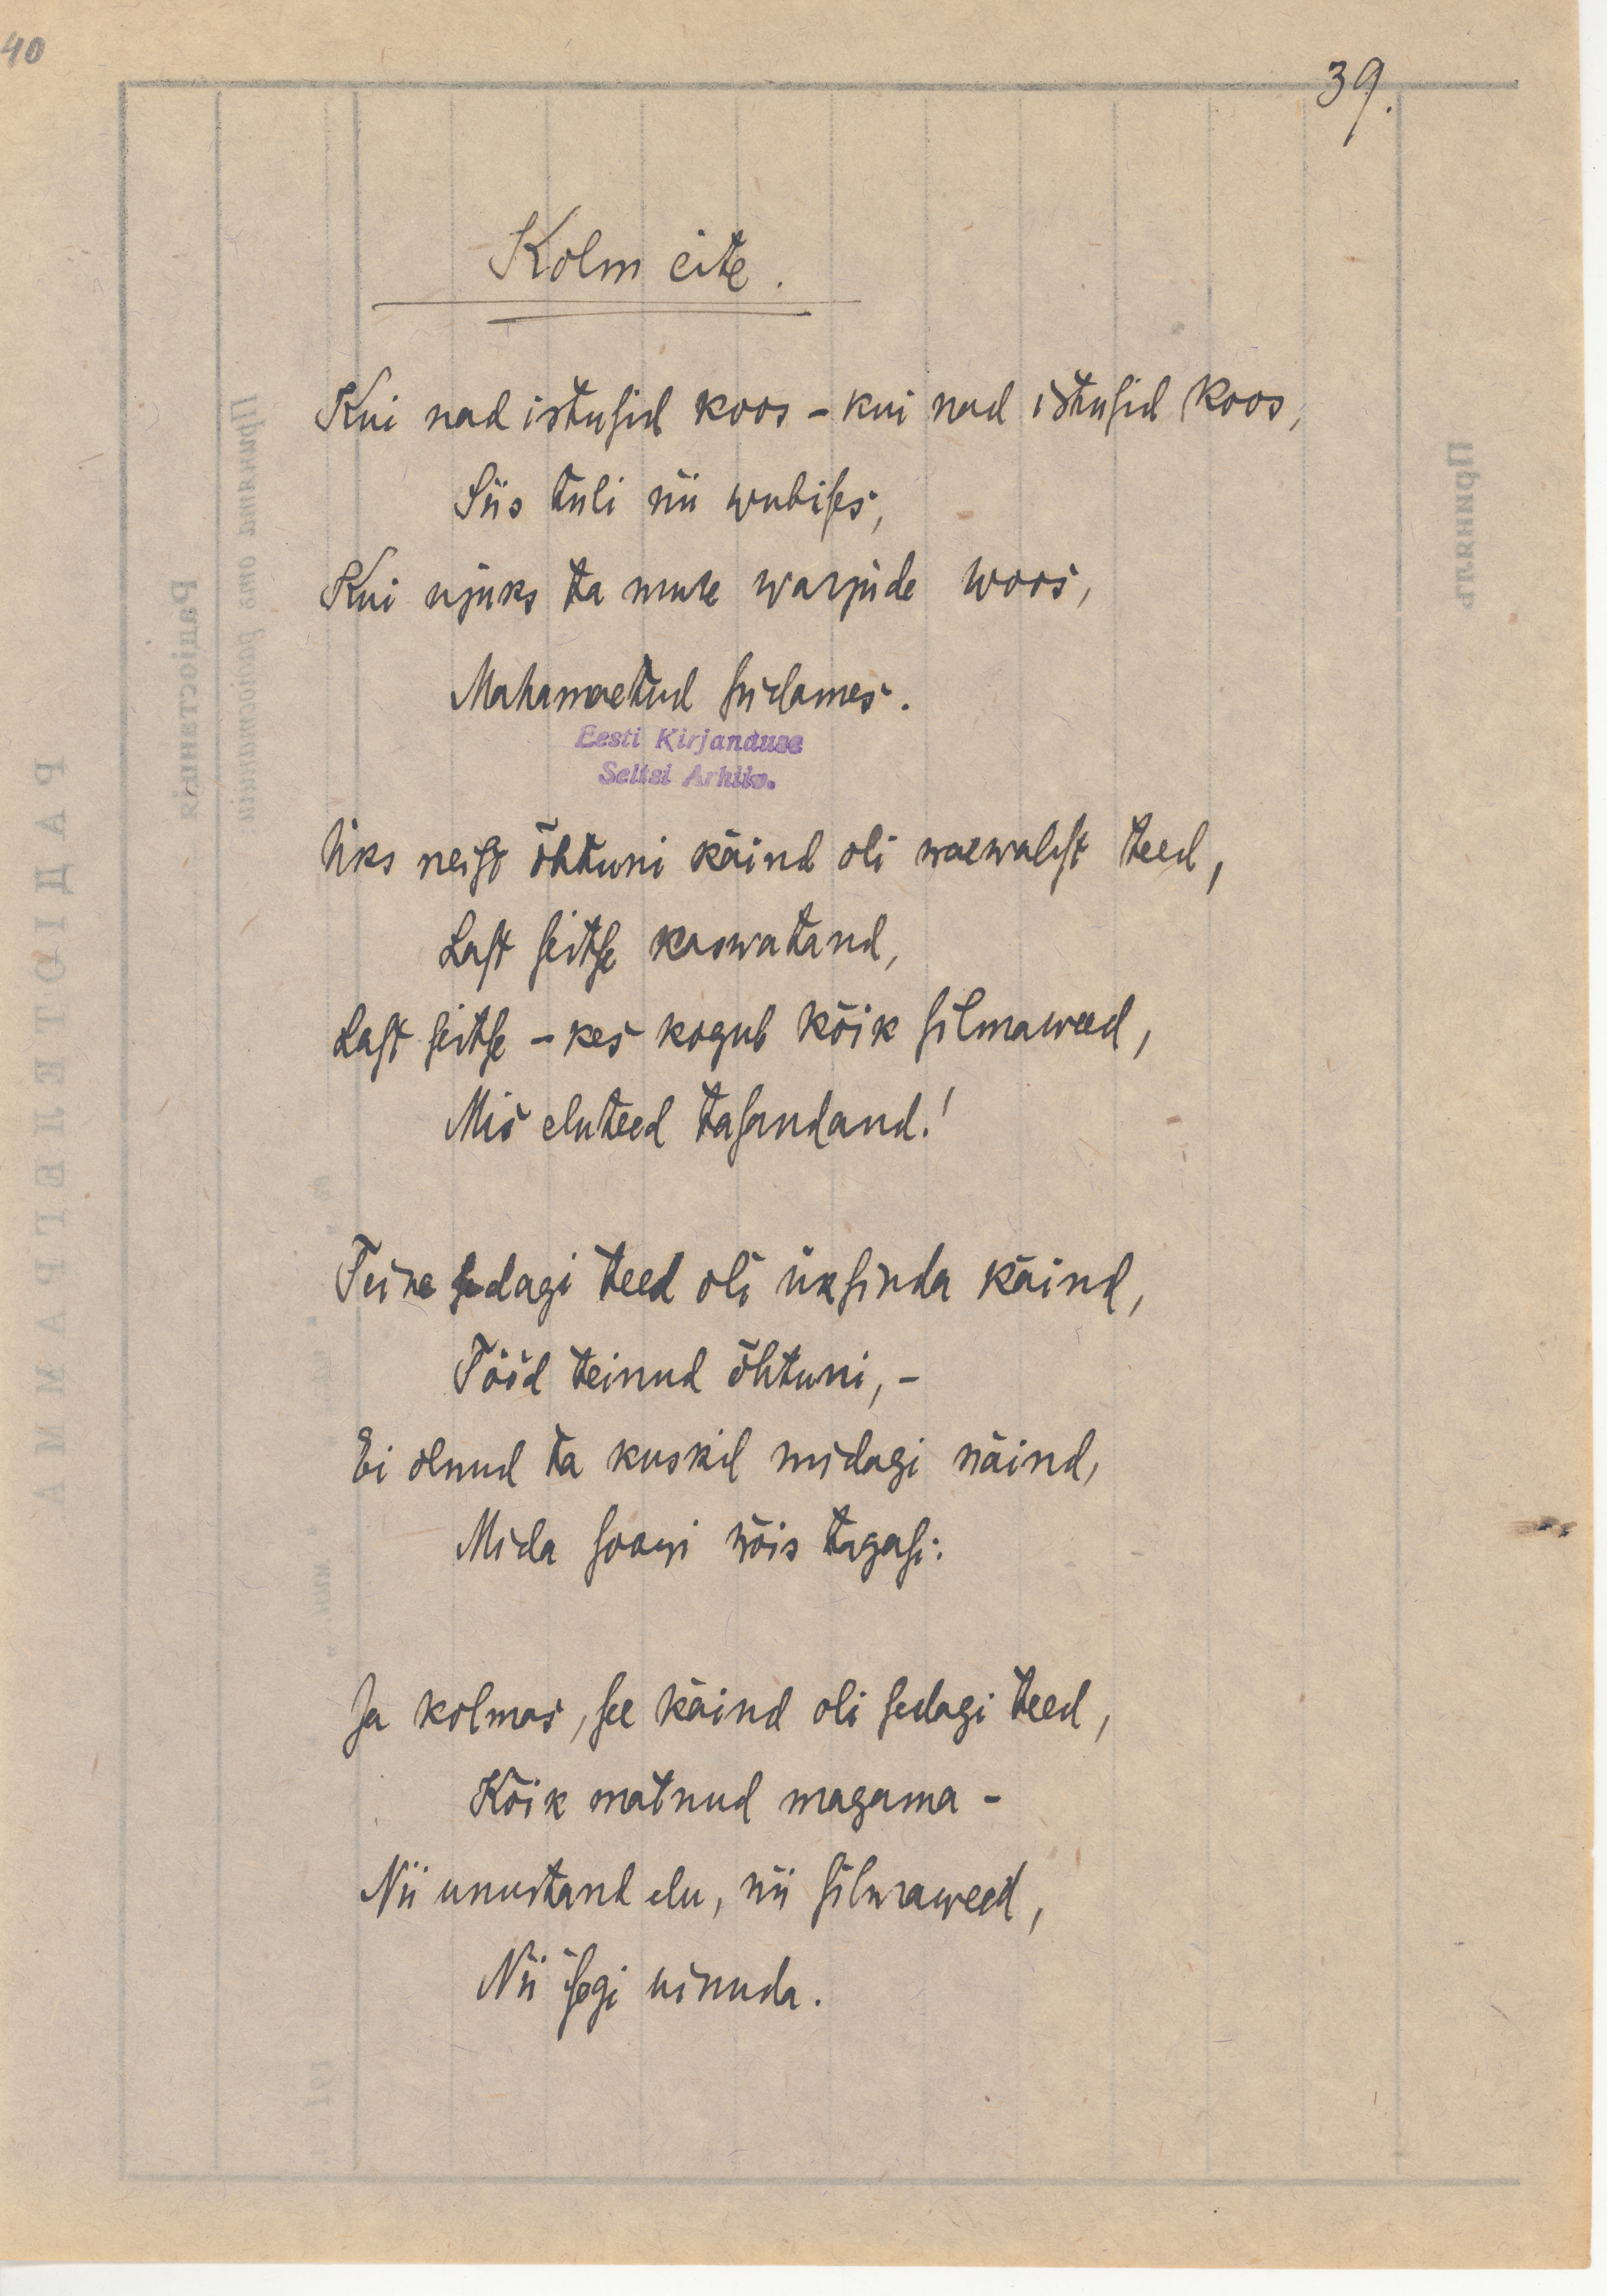 40
39.
Kolm eite.
Kui nad istusid koos – kui nad istusid koos,
Siis tuli nii wubises,
Kui ujuks ta mure warjude woos,
Mahamaetud südames.
Eesti Kirjanduse
Seltsi Arhiiv.
Üks neist õhtuni käind oli waewalist teed,
Last seitse kaswatand,
Last seitse – kes kogub kõik silmaweed,
Mis eluteed tasandand!
Teine sedagi teed oli üksinda käind,
Tööd teinud õhtuni, –
Ei olnud ta kuskil midagi näind,
Mida soowi wõis tagasi.
Ja kolmas, see käind oli sedagi teed,
Kõik matnud magama –
Nii unustand elu, nii silmaweed,
Nii isegi uinuda.
РАДІОТЕЛЕГРАММА
Радіостанція
Принята отъ радіостанціи:
Принялъ